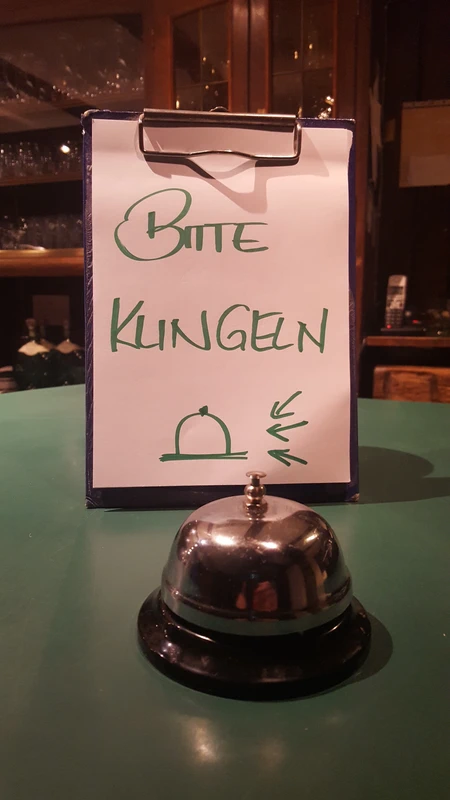 BITTE
KLINGELN